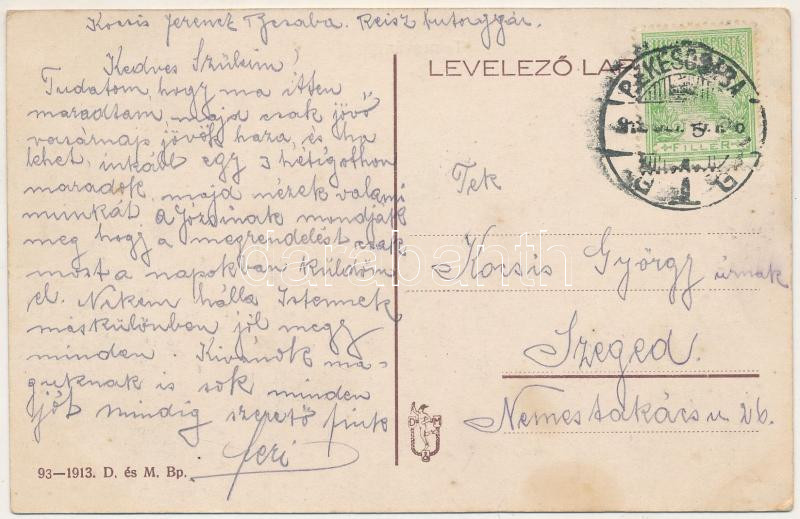 Kocsis Ferencz Bcsaba. Reisz butorgyár.
Kedves Szüleim!
Tudatom, hogy ma itten
maradtam, majd csak jövő
vasárnap jövök haza, és ha
lehet, inkább egy 3 hétig otthon
maradok, majd nézek valami
munkát. A Józsinak mondják
meg hogy a megrendelést csak
most a napokban küldöm
el. Nekem hálla Istennek
máskülönben jól megy
minden. Kivánok ma-
guknak is sok minden
jót mindig szerető fiuk
Feri
93—1913. D. és M. Bp.
LEVELEZŐ LAP
POSTA
FILLER
BÉKÉSCSABA
Tek
Kocsis György úrnak
Szeged.
Nemestakács u 26.
D M
darabanth